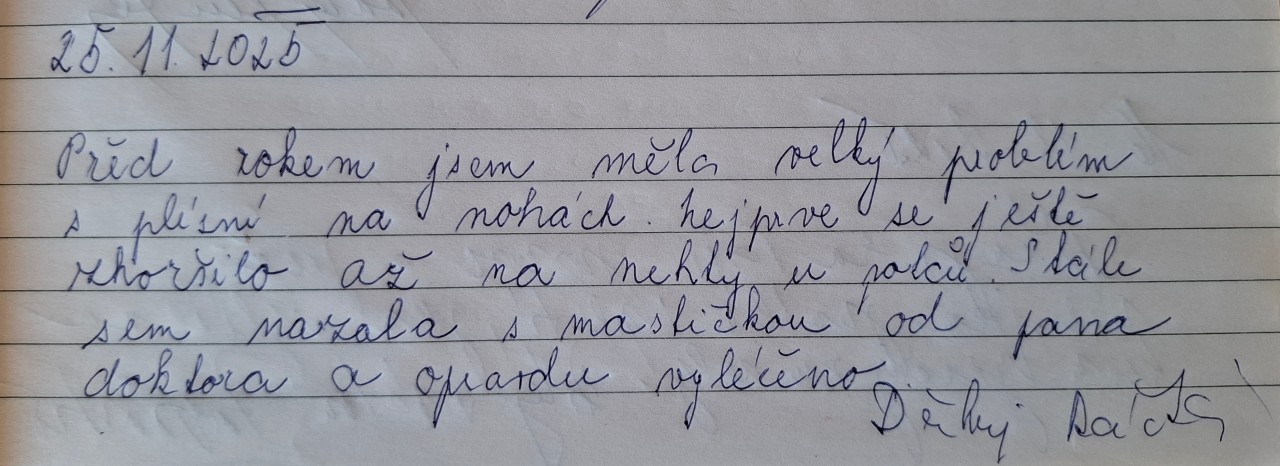 25. 11. 2025
Přěd rokem jsem měla velký problém
s plísní na nohách. Nejprve se ještě
zhoršilo až na nehty u palců. Stále
sem mazala s mastičkou od pana
doktora a opravdu vyléčeno
Děkuj